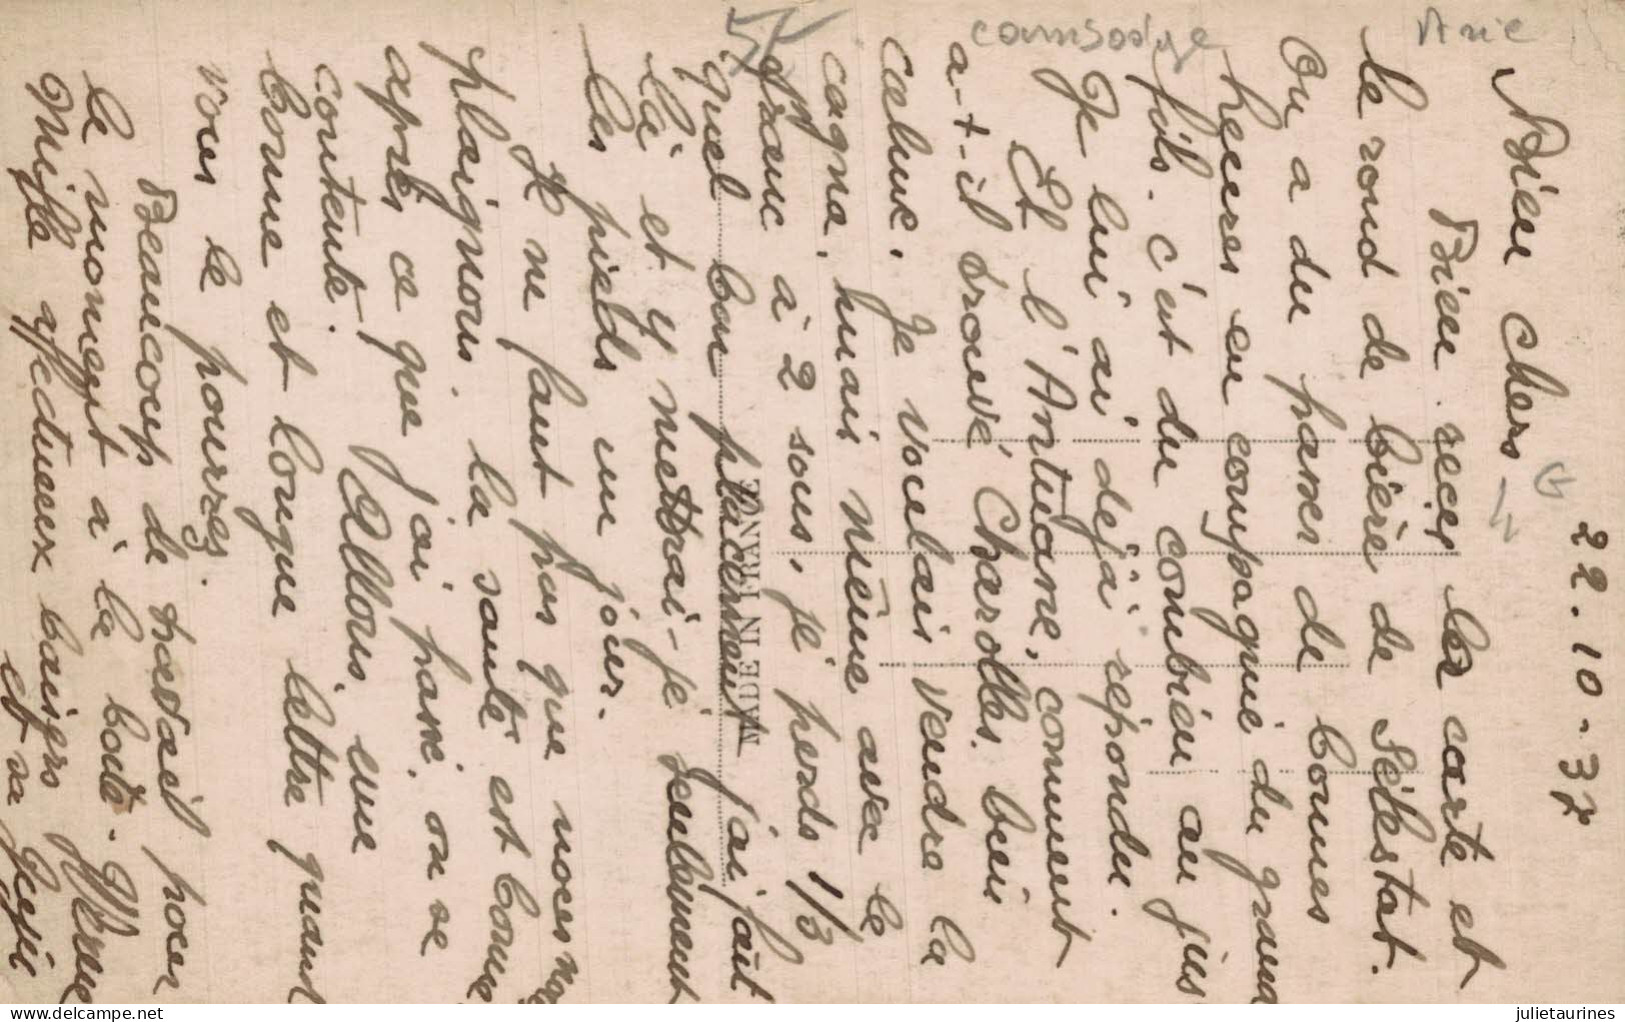 22.10-37
Bien chers
Bien reçu la carte et
le rond de bière de Sélestat.
On a du passer de bonnes
heures en compagnie du grand
fils. c'est du combien au jus
Je lui ai dejà répondu.
Et l'Antuane, comment
a-t-il trouvé Charolles. bien
calme. Je voulais vendre la
cagna, mais même avec le
franc à 2 sous, je perds 1/3
quel bon placement j'ai fait
là et y mettrai-je seulement
les pieds un jour.
Il ne faut pas que nous nous
plaignons. la santé est bonne
après ce que j'ai passé. on se
contente. Allons, une
bonne et longue lettre quand
vous le pourrez.
Beaucoup de travail pour
le moment à la boite.
Mille affectueux baisers
et sa
cambodge
Asie
MADE IN FRANCE
© www.delcampe.net
julietaurines